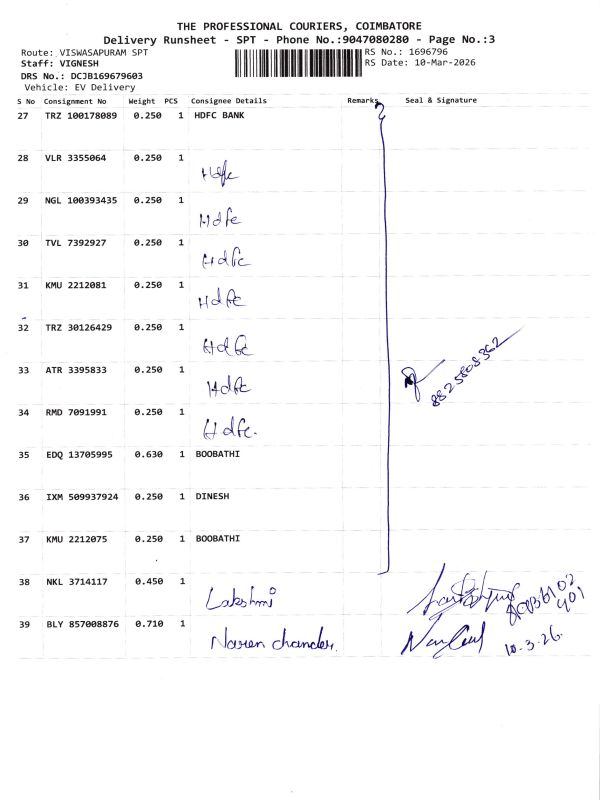 THE PROFESSIONAL COURIERS, COIMBATORE
Delivery Runsheet - SPT - Phone No.:9047080280 - Page No.:3
Route: VISWASAPURAM SPT RS No.: 1696796
Staff: VIGNESH RS Date: 10-Mar-2026
DRS No.: DCJB169679603
Vehicle: EV Delivery
S No Consignment No Weight PCS Consignee Details Remarks Seal & Signature
27 TRZ 100178089 0.250 1 HDFC BANK
28 VLR 3355064 0.250 1
Hdfc
29 NGL 100393435 0.250 1
Hdfc
30 TVL 7392927 0.250 1
Hdfc
31 KMU 2212081 0.250 1
Hdfc
32 TRZ 30126429 0.250 1
Hdfc
33 ATR 3395833 0.250 1
Hdfc 8825808362
34 RMD 7091991 0.250 1
Hdfc.
35 EDQ 13705995 0.630 1 BOOBATHI
36 IXM 509937924 0.250 1 DINESH
37 KMU 2212075 0.250 1 BOOBATHI
38 NKL 3714117 0.450 1
Lakshmi
39 BLY 857008876 0.710 1
Naren chander. 10.3.26.